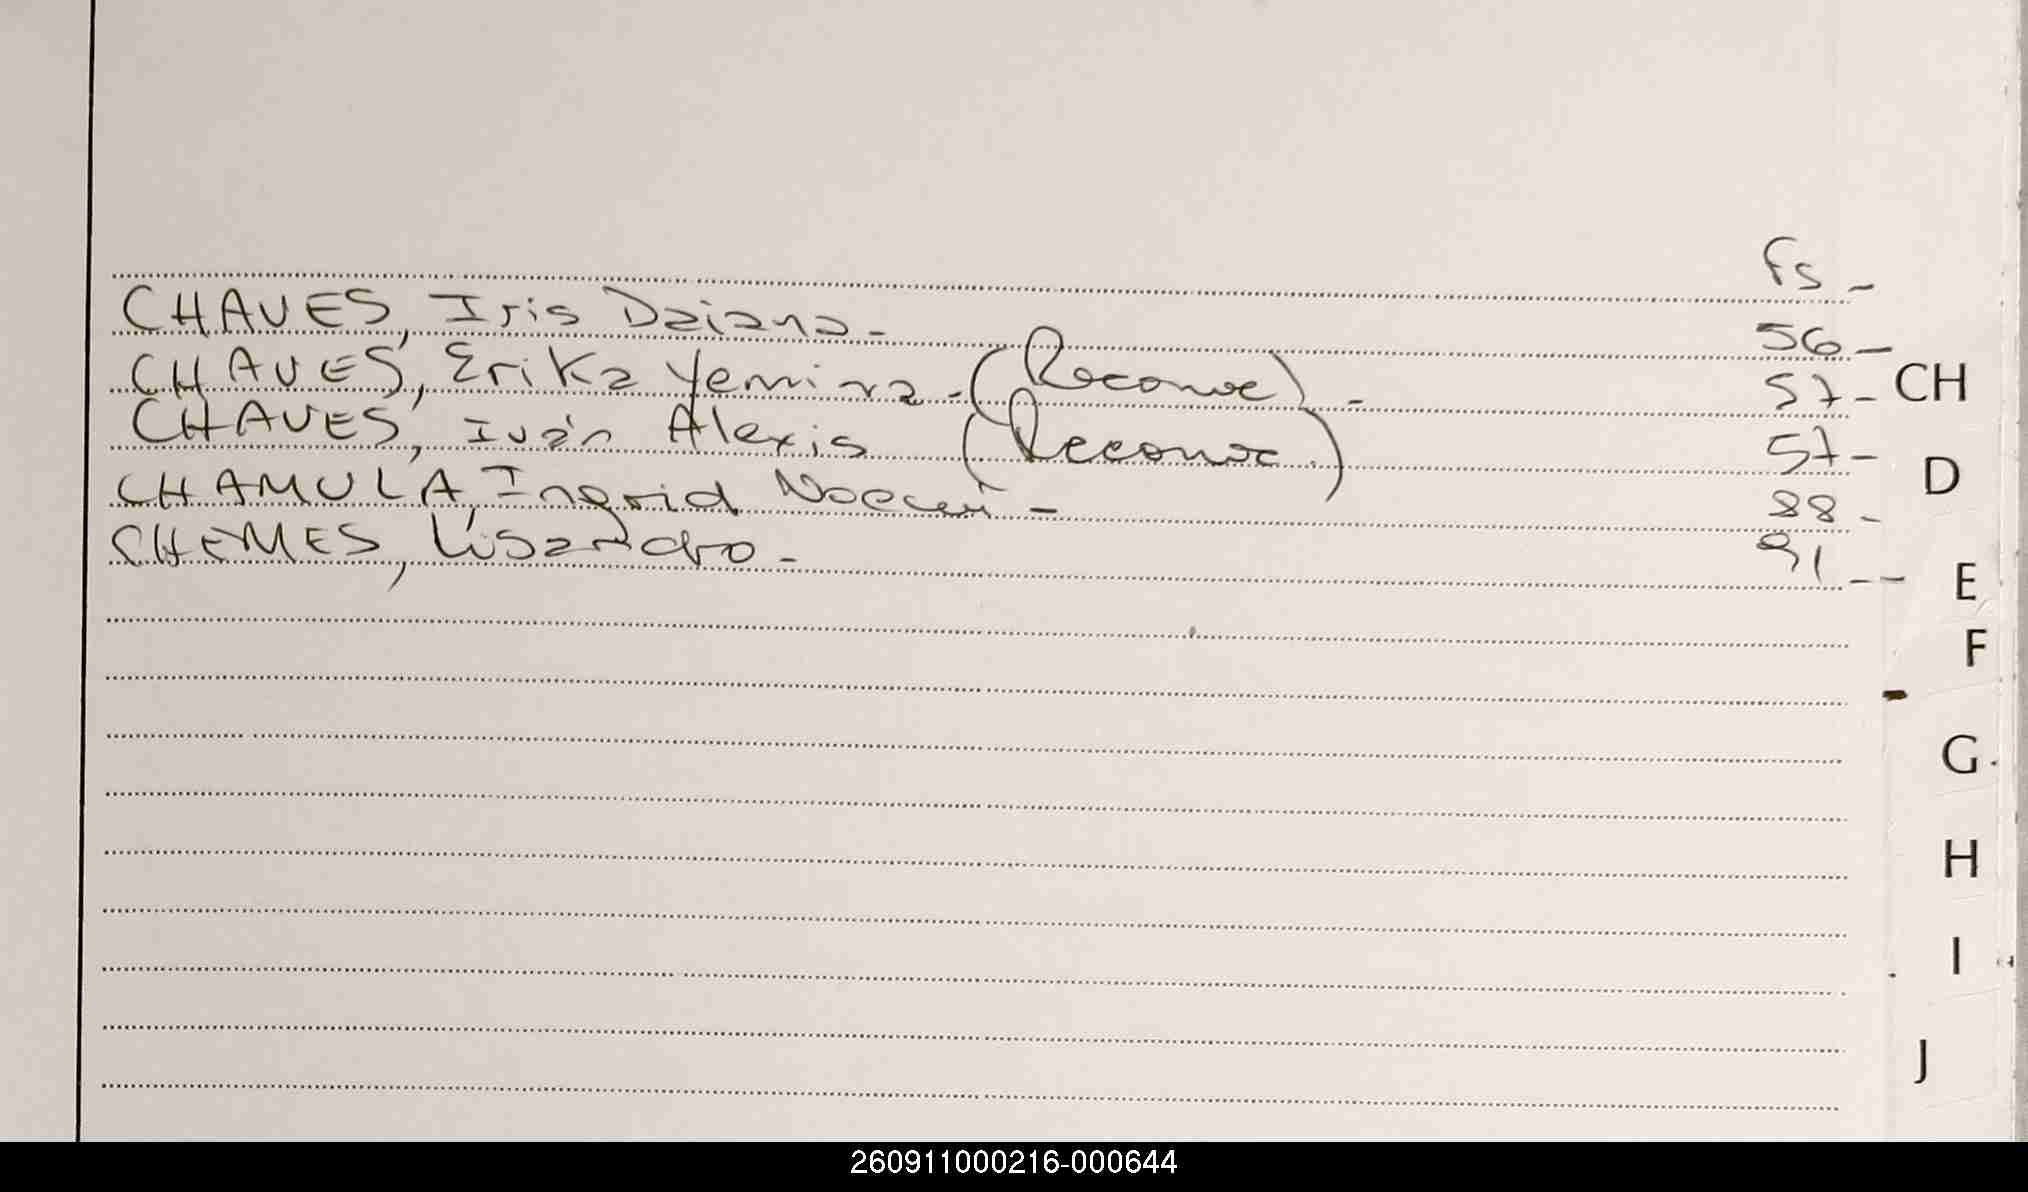 Fs -
CHAVES, Iris Daiana - 56 -
CHAVES, Erika Yemina - (Reconoc) - 57 -
CHAVES, Iván Alexis (Reconoc) 57 -
CHAMULA, Ingrid Noemí - 88 -
CHEMES, Lisandro - 91 --
CH
D
E
F
G
H
I
J
260911000216-000644